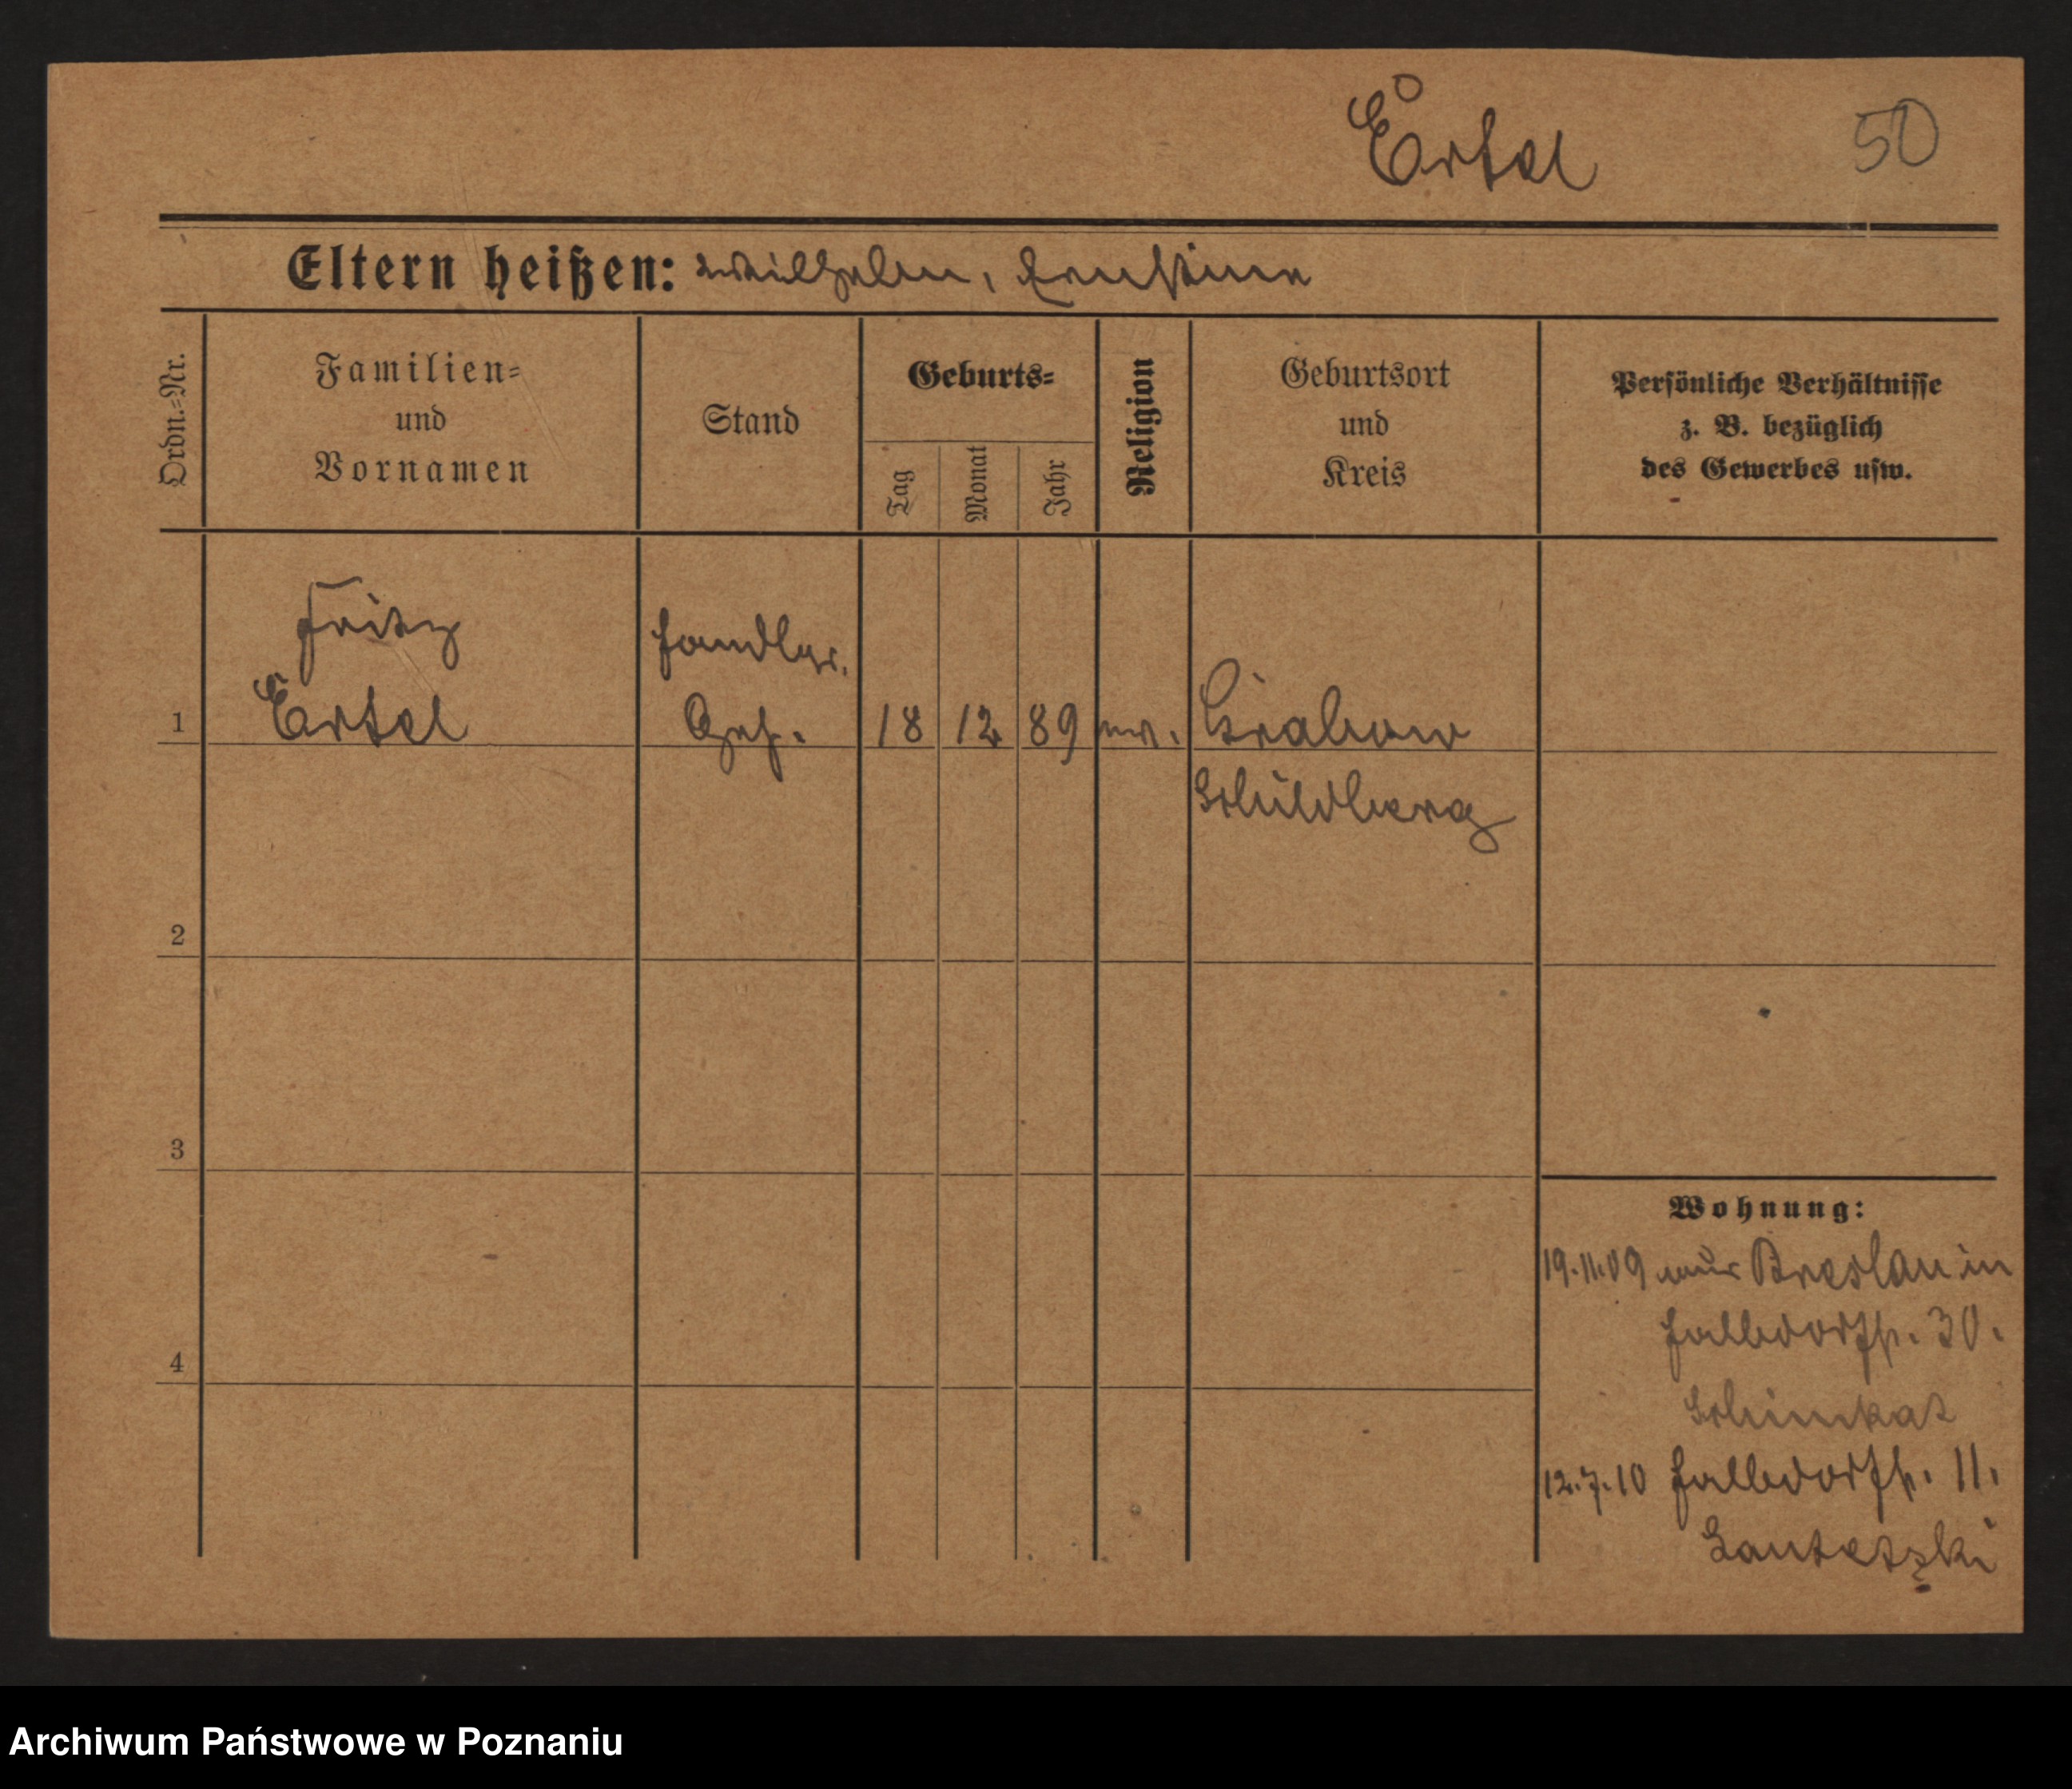 Ertel
50
Eltern heißen: Wilhelm, Ernstine
Ordn.-Nr.
Familien-
und
Vornamen
Stand
Geburts-
Tag
Monat
Jahr
Religion
Geburtsort
und
Kreis
Persönliche Verhältnisse
z. B. bezüglich
des Gewerbes usw.
Fritz
Handlgs.
1 Ertel Geh. 18 12 89 ev. Grabow
Schildberg
2
3
4
Wohnung:
19.11.09 aus Breslau in
Halbdorfstr. 30.
Schimkat
12.7.10 Halbdorfstr. 11.
Archiwum Państwowe w Poznaniu